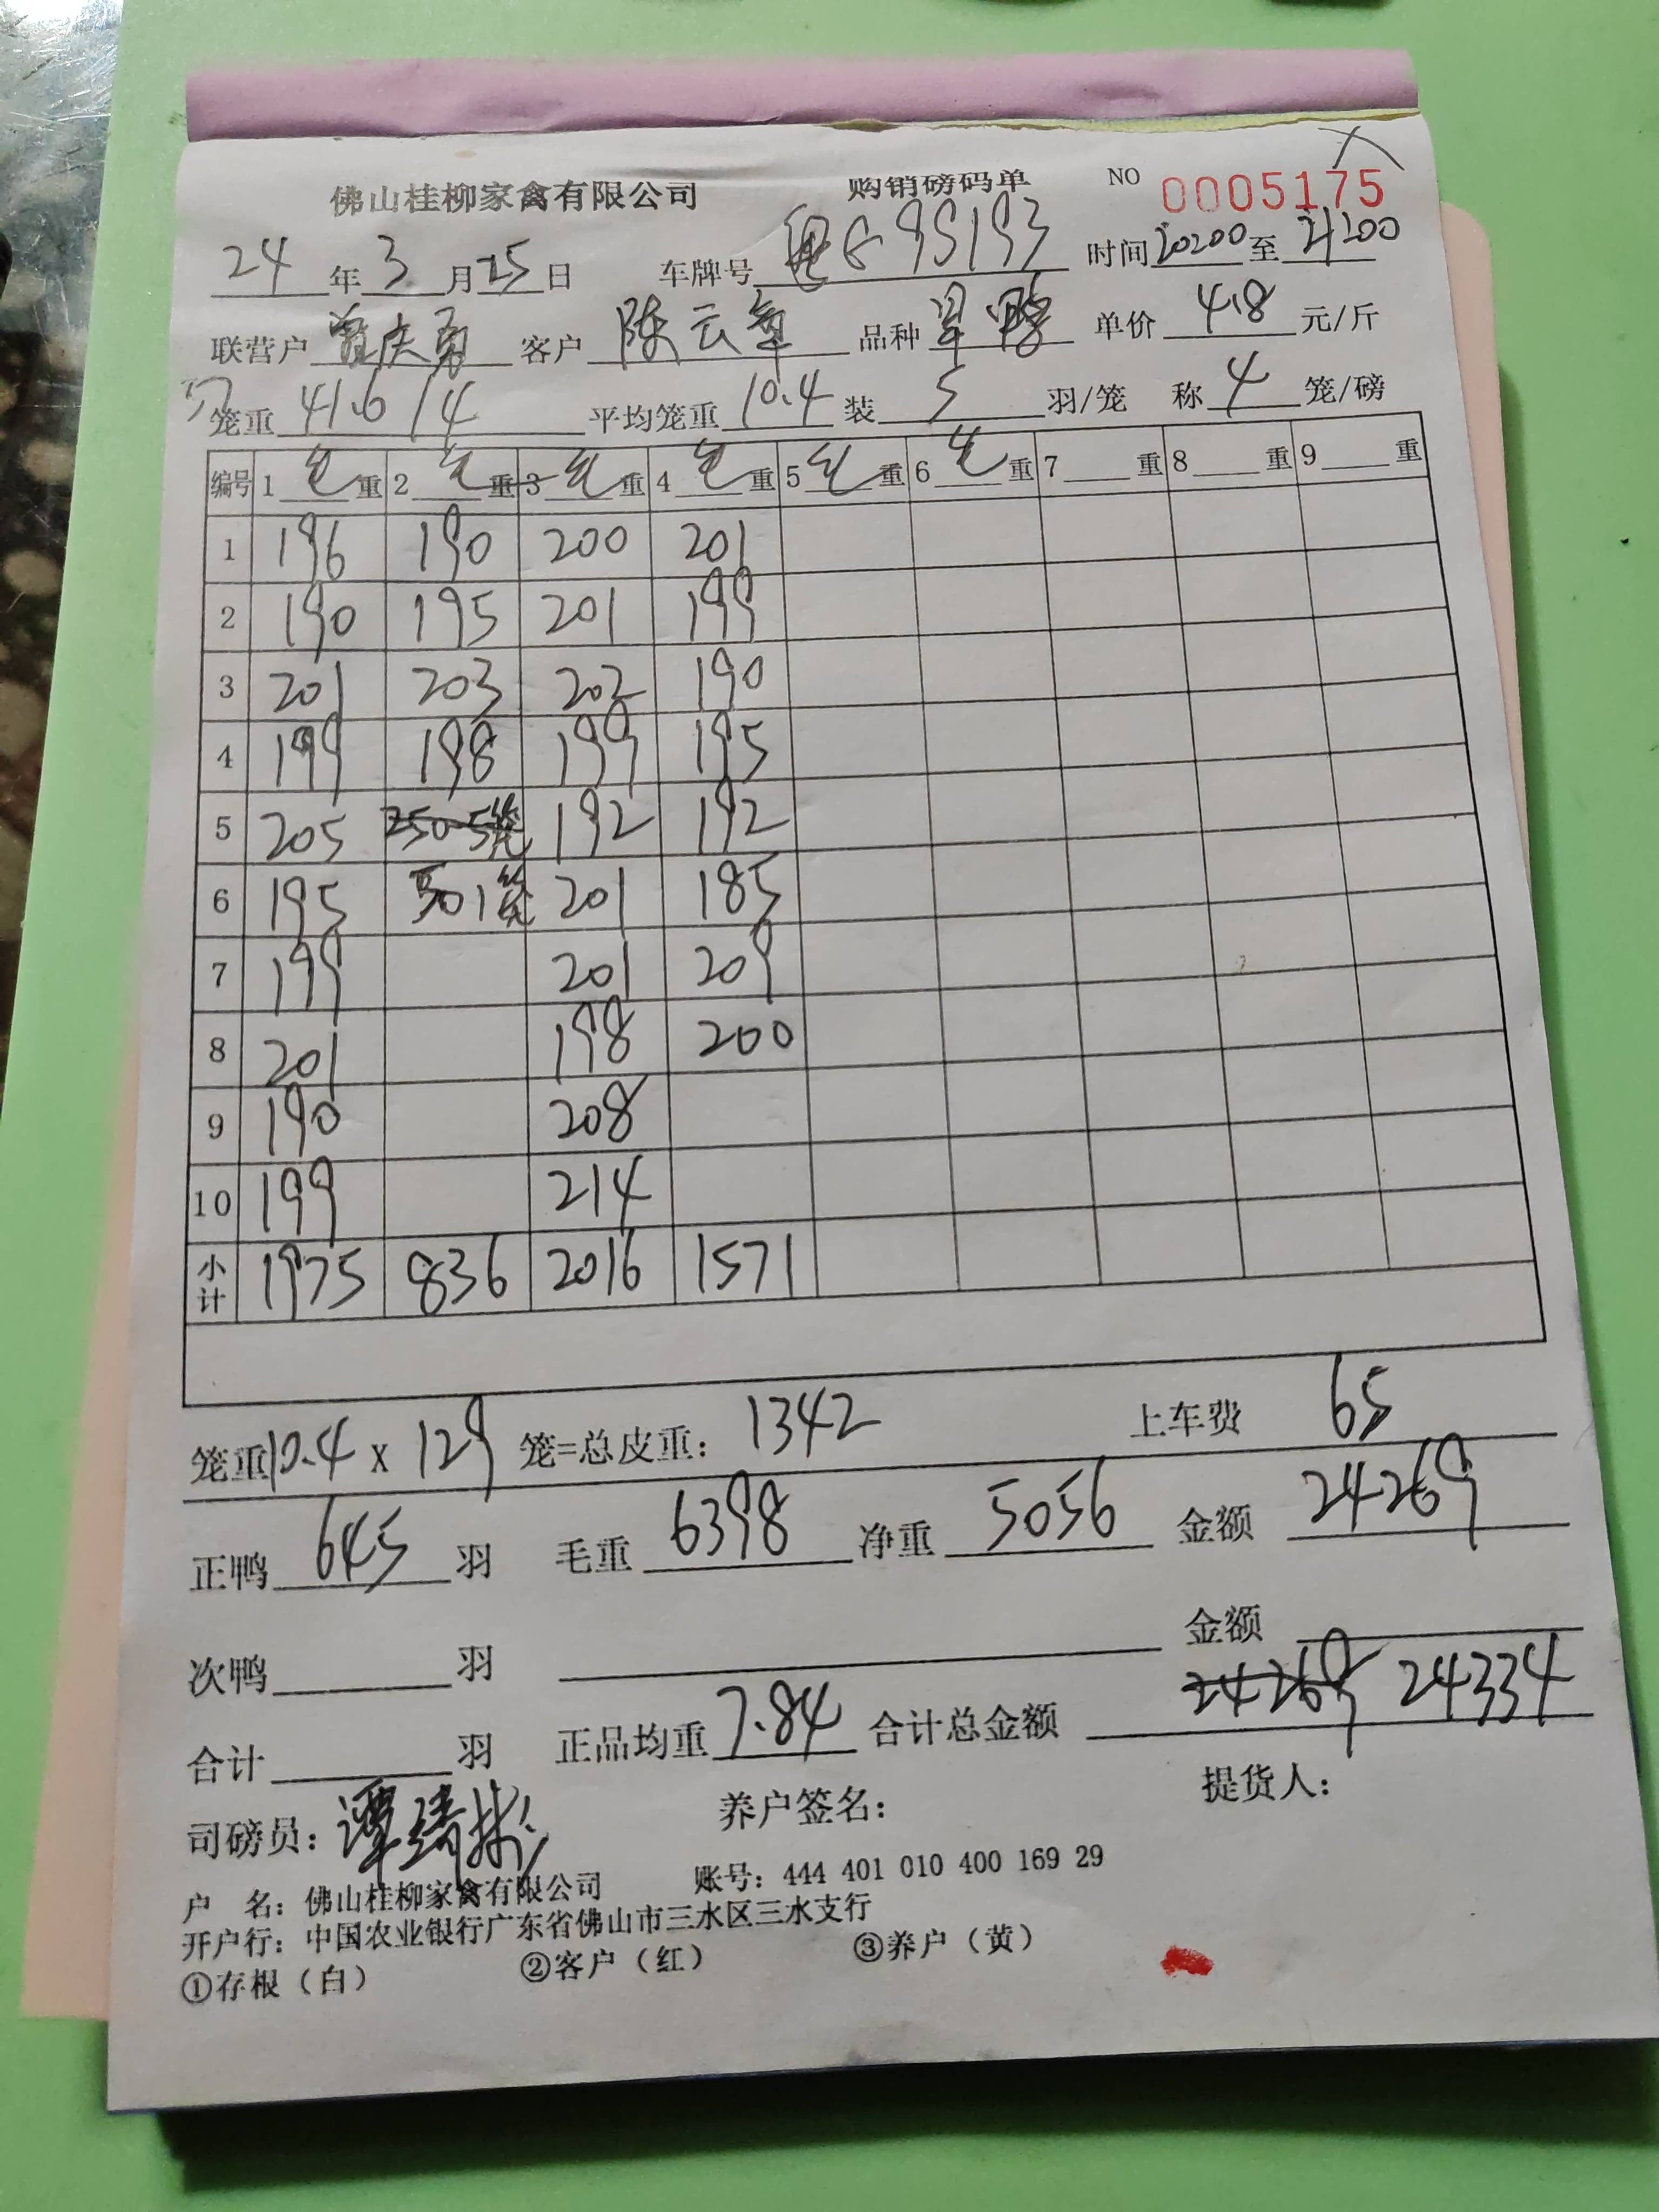 佛山桂柳家禽有限公司 购销磅码单 NO 0005175
24年3月25日 车牌号 粤G95193 时间20200至21200
联营户 客户 陈云 品种 单价 4.8 元/斤
笼重 41.6/4 平均笼重 10.4 装 5 羽/笼 称 4 笼/磅
编号 1 毛 重 2 毛 重 3 毛 重 4 毛 重 5 毛 重 6 毛 重 7 重 8 重 9 重
1 196 190 200 201
2 190 195 201 199
3 201 203 202 190
4 199 198 199 195
5 205 250 5笼 192 192
6 195 50 1笼 201 185
7 199 201 209
8 201 198 200
9 190 208
10 199 214
小计 1975 836 2016 1571
笼重10.4 x 129 笼=总皮重: 1342 上车费 65
正鸭 645 羽 毛重 6398 净重 5056 金额 24269
次鸭 羽 金额
合计 羽 正品均重 7.84 合计总金额 24269 24334
司磅员: 养户签名: 提货人:
户 名: 佛山桂柳家禽有限公司 账号: 444 401 010 400 169 29
开户行: 中国农业银行广东省佛山市三水区三水支行
①存根（白） ②客户（红） ③养户（黄）